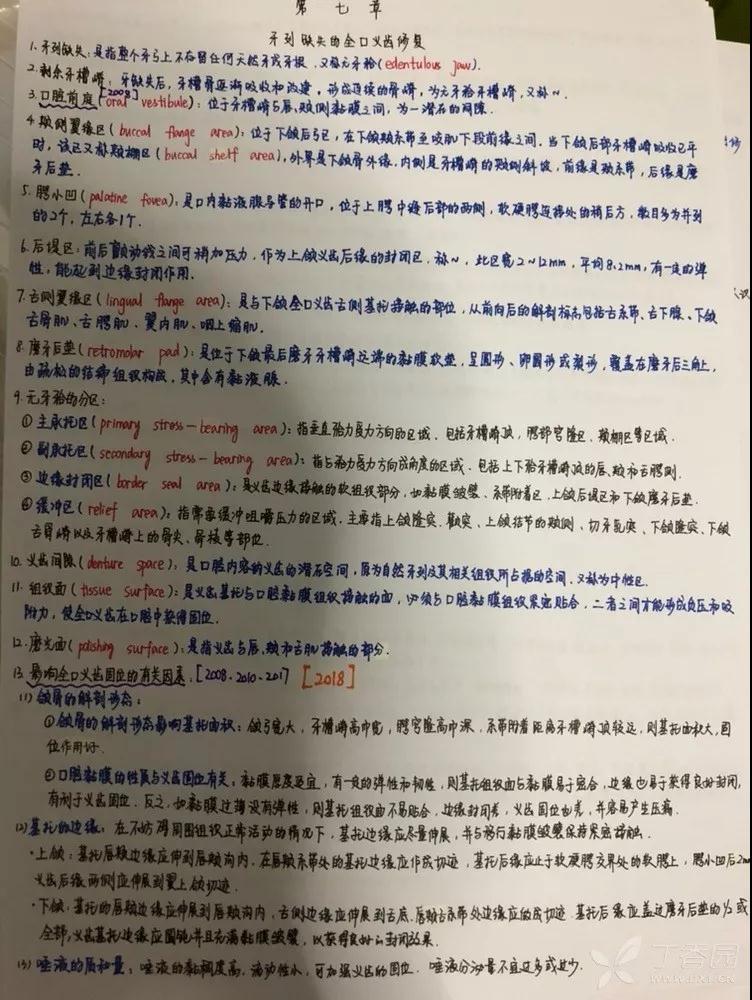 第七章
牙列缺失的全口义齿修复
1. 牙列缺失：是指整个牙弓上不存留任何天然牙或牙根，又称无牙颌(edentulous jaw).
2. 剩余牙槽嵴：牙缺失后，牙槽骨逐渐吸收和改建，形成连续的骨嵴，为无牙颌牙槽嵴，又称~.
3. 口腔前庭[2008](oral vestibule)：位于牙槽嵴与唇、颊侧黏膜之间，为一潜在的间隙.
4. 颊侧翼缘区(buccal flange area)：位于下颌后弓区，在下颌颊系带至咬肌下段前缘之间，当下颌后部牙槽嵴吸收已平
时，该区又称颊棚区(buccal shelf area)，外界是下颌骨外缘，内侧是牙槽嵴的颊侧斜坡，前缘是颊系带，后缘是磨
牙后垫.
5. 腭小凹(palatine fovea)：是口内黏液腺导管的开口，位于上腭中缝后部的两侧，软硬腭连接处的稍后方，数目多为并列
的2个，左右各1个.
6. 后堤区：前后颤动线之间可稍加压力，作为上颌义齿后缘的封闭区，称~，此区宽2~12mm，平均8.2mm，有一定的弹
性，能起到边缘封闭作用.
7. 舌侧翼缘区(lingual flange area)：是与下颌全口义齿舌侧基托接触的部位，从前向后的解剖标志包括舌系带、舌下腺、下颌
舌骨肌、舌腭肌、翼内肌、咽上缩肌.
8. 磨牙后垫(retromolar pad)：是位于下颌最后磨牙牙槽嵴远端的黏膜软垫，呈圆形、卵圆形或梨形，覆盖在磨牙后三角上，
由疏松的结缔组织构成，其中含有黏液腺.
9. 无牙颌的分区：
①主承托区(primary stress-bearing area)：指垂直𬌗力受力方向的区域，包括牙槽嵴顶，腭部穹隆区、颊棚区等区域.
②副承托区(secondary stress-bearing area)：指与𬌗力受力方向成角度的区域，包括上下颌牙槽嵴的唇、颊和舌腭侧.
③边缘封闭区(border seal area)：是义齿边缘接触的软组织部分，如黏膜皱襞、系带附着区、上颌后堤区和下颌磨牙后垫.
④缓冲区(relief area)：指需要缓冲咀嚼压力的区域，主要指上颌隆突、颧突、上颌结节的颊侧、切牙乳突、下颌隆突、下颌
舌骨嵴以及牙槽嵴上的骨尖、骨棱等部位.
10. 义齿间隙(denture space)：是口腔内容纳义齿的潜在空间，原为自然牙列及其相关组织所占据的空间，又称为中性区.
11. 组织面(tissue surface)：是义齿基托与口腔黏膜组织接触的面，必须与口腔黏膜组织紧密贴合，二者之间才能形成负压和吸
附力，使全口义齿在口腔中获得固位.
12. 磨光面(polishing surface)：是指义齿与唇、颊和舌肌接触的部分.
13. 影响全口义齿固位的有关因素：[2008.2010.2017 [2018]
(1) 颌骨的解剖形态：
①颌骨的解剖形态影响基托面积：颌弓宽大，牙槽嵴高而宽，腭穹隆高而深，系带附着距离牙槽嵴顶较远，则基托面积大，固
位作用好.
②口腔黏膜的性质与义齿固位有关：黏膜厚度适宜，有一定的弹性和韧性，则基托组织面与黏膜易于密合，边缘也易于获得良好封闭，
有利于义齿固位. 反之，如黏膜过薄没有弹性，则基托组织面不易贴合，边缘封闭差，义齿固位也差，并容易产生压痛.
(2) 基托的边缘：在不妨碍周围组织正常活动的情况下，基托边缘应尽量伸展，并与移行黏膜皱襞保持紧密接触.
·上颌：基托唇颊边缘应伸到唇颊沟内，在唇颊系带处的基托边缘应作成切迹，基托后缘应止于软硬腭交界处的软腭上，腭小凹后2mm
义齿后缘两侧应伸展到翼上颌切迹.
·下颌：基托的唇颊边缘应伸展到唇颊沟内，舌侧边缘应伸展到舌底，唇颊舌系带处边缘应做成切迹，基托后缘应盖过磨牙后垫的1/2或
全部，义齿基托边缘应圆钝并且充满黏膜皱襞，以获得良好的封闭效果.
(3) 唾液的质和量：唾液的黏稠度高，流动性小，可加强义齿的固位. 唾液分泌量不宜过多或过少.
丁香园